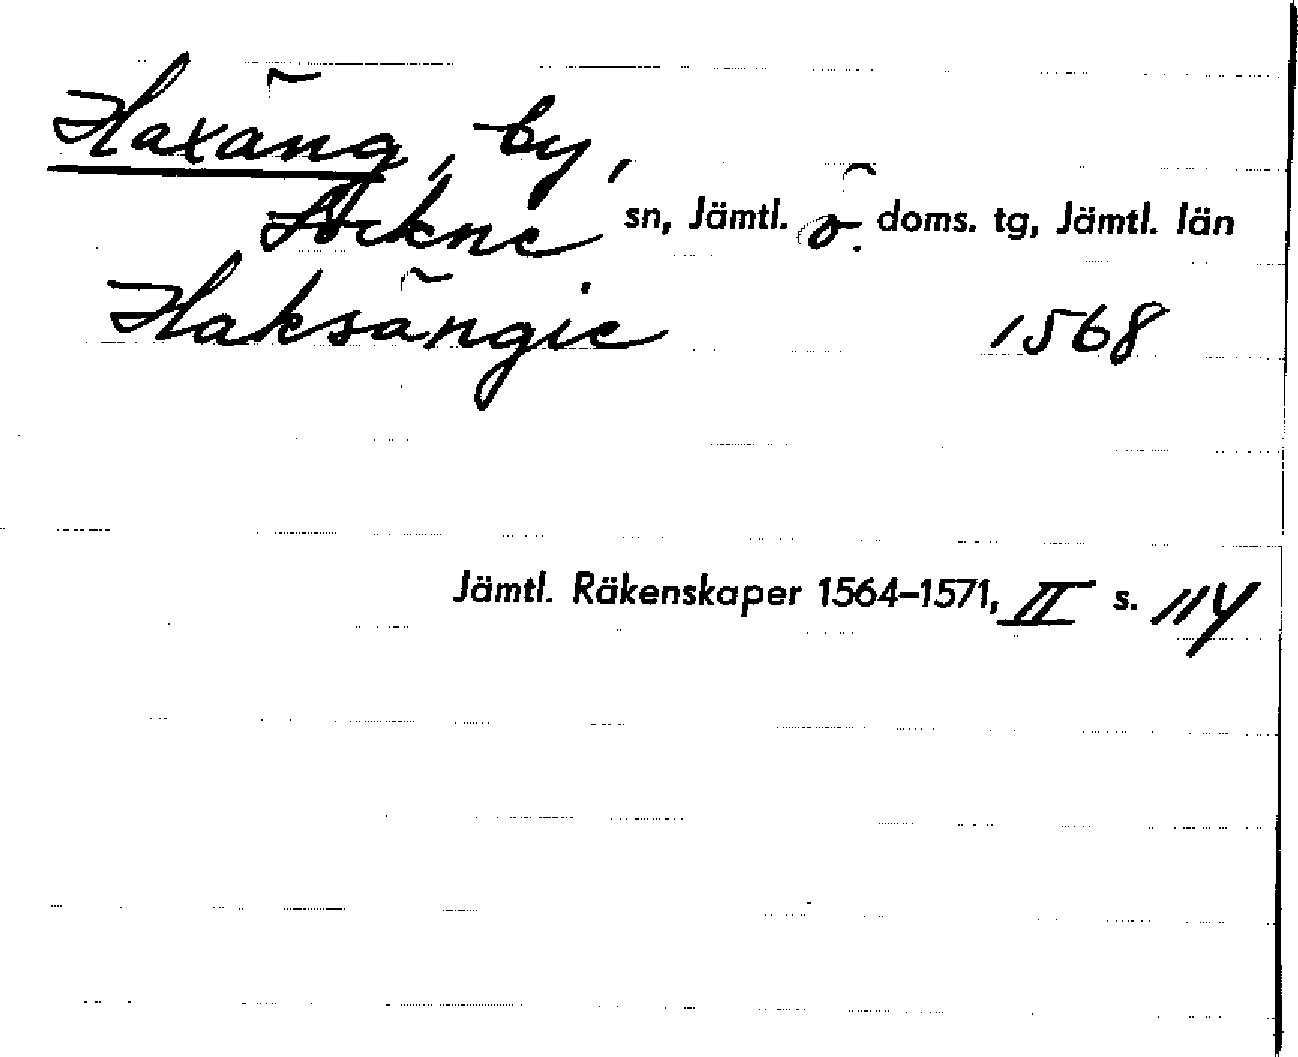 Haxäng, by,
Lockne sn, Jämtl. ö. doms. tg, Jämtl. län
Haksängie 1568
Jämtl. Räkenskaper 1564–1571, II s. 114